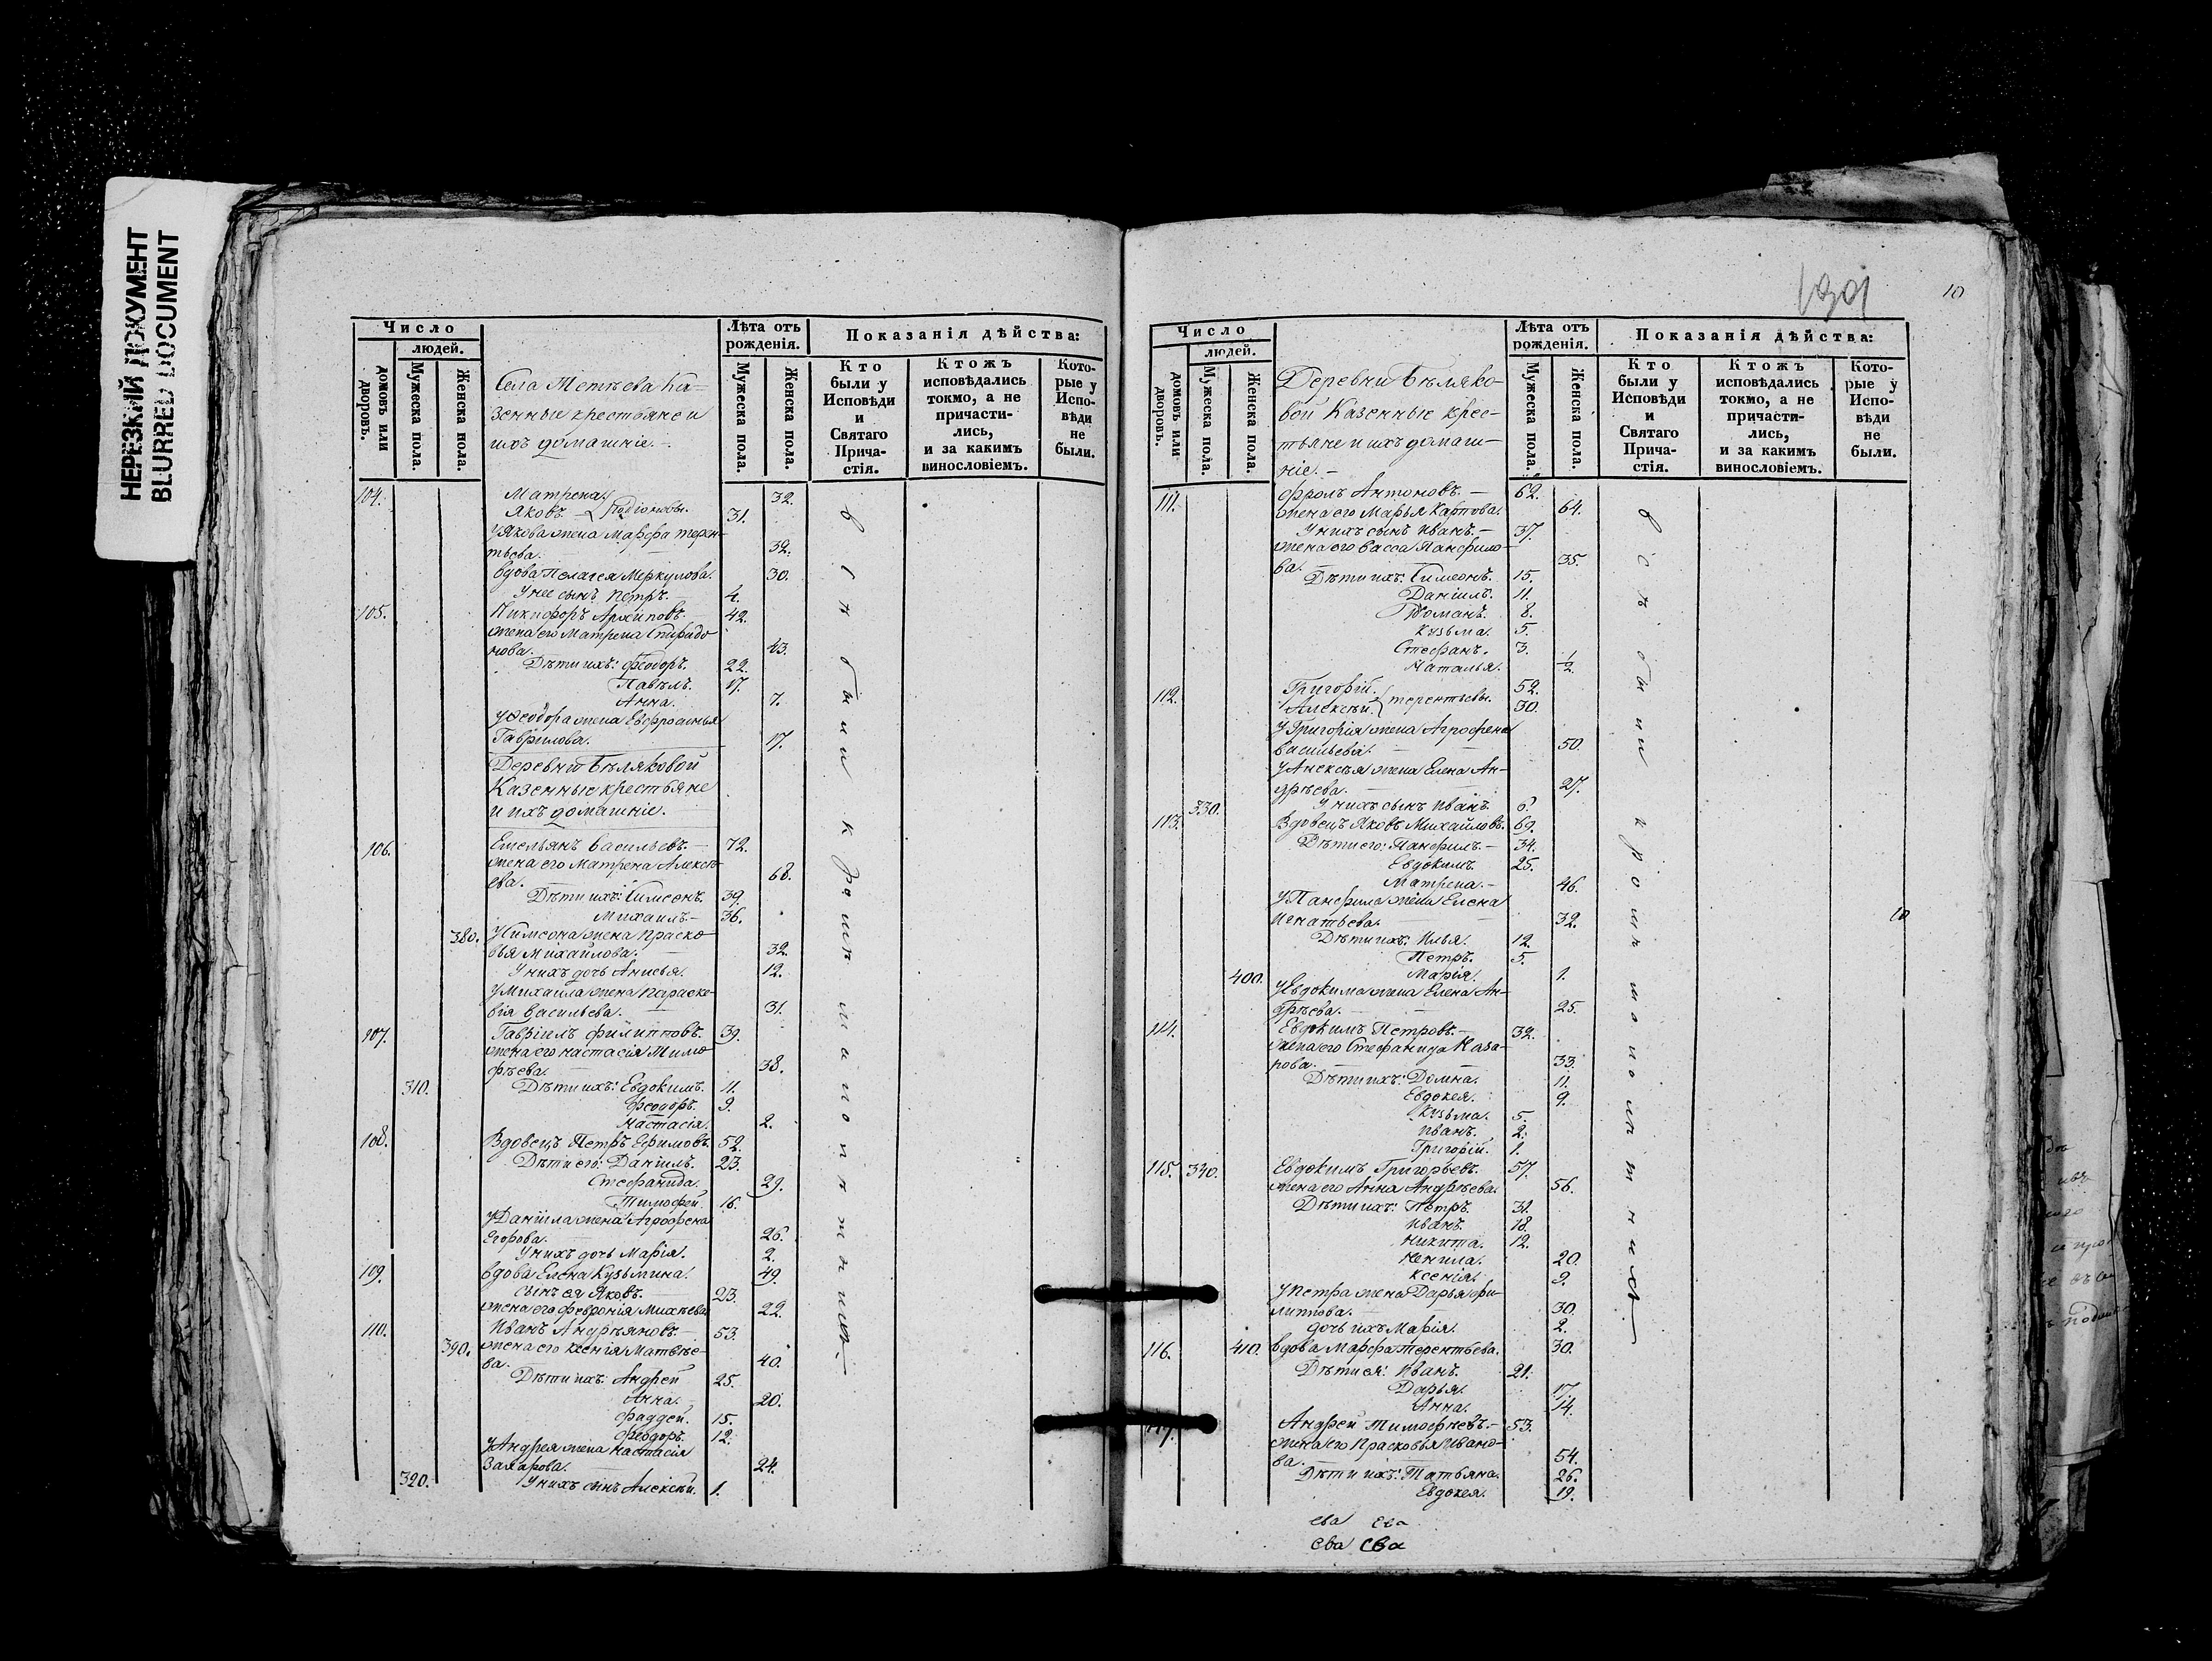 НЕРЕЗКИЙ ДОКУМЕНТ
BLURRED DOCUMENT
Число
людей.
домовъ или дворовъ.
Мужеска пола.
Женска пола.
Села Метѣева Ка-
зенные крестьяне и
ихъ домашніе.
Лѣта отъ рожденія.
Мужеска пола.
Женска пола.
Показанія дѣйства:
Кто были у Исповѣди и Святаго Прича-стія.
Ктожъ исповѣдались токмо, а не причасти-лись, и за какимъ винословіемъ.
Кото-рые у Испо-вѣди не были.
104. Матрена 32.
Яковъ 31.
У Якова жена Марфа Терен-
тьева. 32.
вдова Пелагея Меркулова. 30.
У нее сынъ Петръ. 4.
105. Никифоръ Архиповъ 42.
жена его Матрена Спиридо
нова. 43.
Дѣти ихъ: Феодоръ. 22.
Павелъ. 17.
Анна. 7.
У Феодора жена Евфросинья
Гаврилова. 17.
Деревни Бѣляковой
Казенные крестьяне
и ихъ домашніе.
106. Емельянъ Васильевъ. 72.
жена его Матрена Алексѣ-
ева. 68.
Дѣти ихъ: Симеонъ. 39.
Михаилъ. 36.
380. У Симеона жена Праско-
вья Михайлова. 32.
У нихъ дочь Анисья. 12.
У Михаила жена Параске-
вія Васильева. 31.
107. Гавріилъ Филипповъ. 39.
жена его Настасія Тимо-
фѣева. 38.
310. Дѣти ихъ: Евдокимъ. 11.
Феодоръ. 9.
Настасія. 2.
108. Вдовецъ Петръ Ефимовъ. 52.
Дѣти его: Даніилъ. 23.
Стефанида. 29.
Тимофей. 16.
У Даніила жена Агрофена
Егорова. 26.
У нихъ дочь Марія. 2.
109. вдова Елена Кузьмина. 49.
сынъ ея Яковъ. 23.
жена его Февронія Михѣева 22.
110. Иванъ Андрѣяновъ. 53.
390. жена его Ксенія Матвѣе-
ва. 40.
Дѣти ихъ: Андрей 25.
Анна. 20.
Фаддей. 15.
Феодоръ. 12.
У Андрея жена Настасія
Захарова. 24.
320. У нихъ сынъ Алексѣй. 1.
10
Число
людей.
домовъ или дворовъ.
Мужеска пола.
Женска пола.
Деревни Бѣляко-
вой Казенные крес-
тьяне и ихъ домаш-
ніе.
Лѣта отъ рожденія.
Мужеска пола.
Женска пола.
Показанія дѣйства:
Кто были у Исповѣди и Святаго Прича-стія.
Ктожъ исповѣдались токмо, а не причасти-лись, и за какимъ винословіемъ.
Кото-рые у Испо-вѣди не были.
111. Фролъ Антоновъ. 62.
жена его Марья Карпова. 64.
У нихъ сынъ Иванъ. 37.
жена его Васса Панфило-
ва. 35.
Дѣти ихъ: Симеонъ. 15.
Даніилъ. 11.
Романъ. 8.
Кузьма. 5.
Стефанъ. 3.
Наталья. 1/2
112. Григорій. 52.
Алексѣй. Терентьевы. 30.
У Григорія жена Агрофена
Васильева. 50.
У Алексѣя жена Елена Ан-
дрѣева. 27.
330. У нихъ сынъ Иванъ. 6.
113. Вдовецъ Яковъ Михайловъ. 69.
Дѣти его: Панфилъ. 34.
Евдокимъ. 25.
Матрена. 46.
У Панфила жена Елена
Игнатьева. 32.
Дѣти ихъ: Илья. 12.
Петръ. 5.
400. Марія. 1.
У Евдокима жена Елена Ан-
дрѣева. 25.
114. Евдокимъ Петровъ. 32.
жена его Стефанида Каза-
рова. 33.
Дѣти ихъ: Домна. 11.
Евдокея. 9.
Кузьма. 5.
Иванъ. 2.
Григорій. 1.
115. 340. Евдокимъ Григорьевъ. 57.
жена его Анна Андрѣева. 56.
Дѣти ихъ: Петръ. 31.
Иванъ. 18.
Никита. 12.
Ненила. 20.
Ксенія. 9.
У Петра жена Дарья Фи-
липпова. 30.
дочь ихъ Марія. 2.
116. 410. вдова Марфа Терентьева. 30.
Дѣти ея: Иванъ. 21.
Дарья. 17.
Анна. 14.
117. Андрей Тимофѣевъ. 53.
жена его Прасковья Ивано-
ва. 54.
Дѣти ихъ: Татьяна. 26.
Евдокея. 19.
ева ева
ева ева